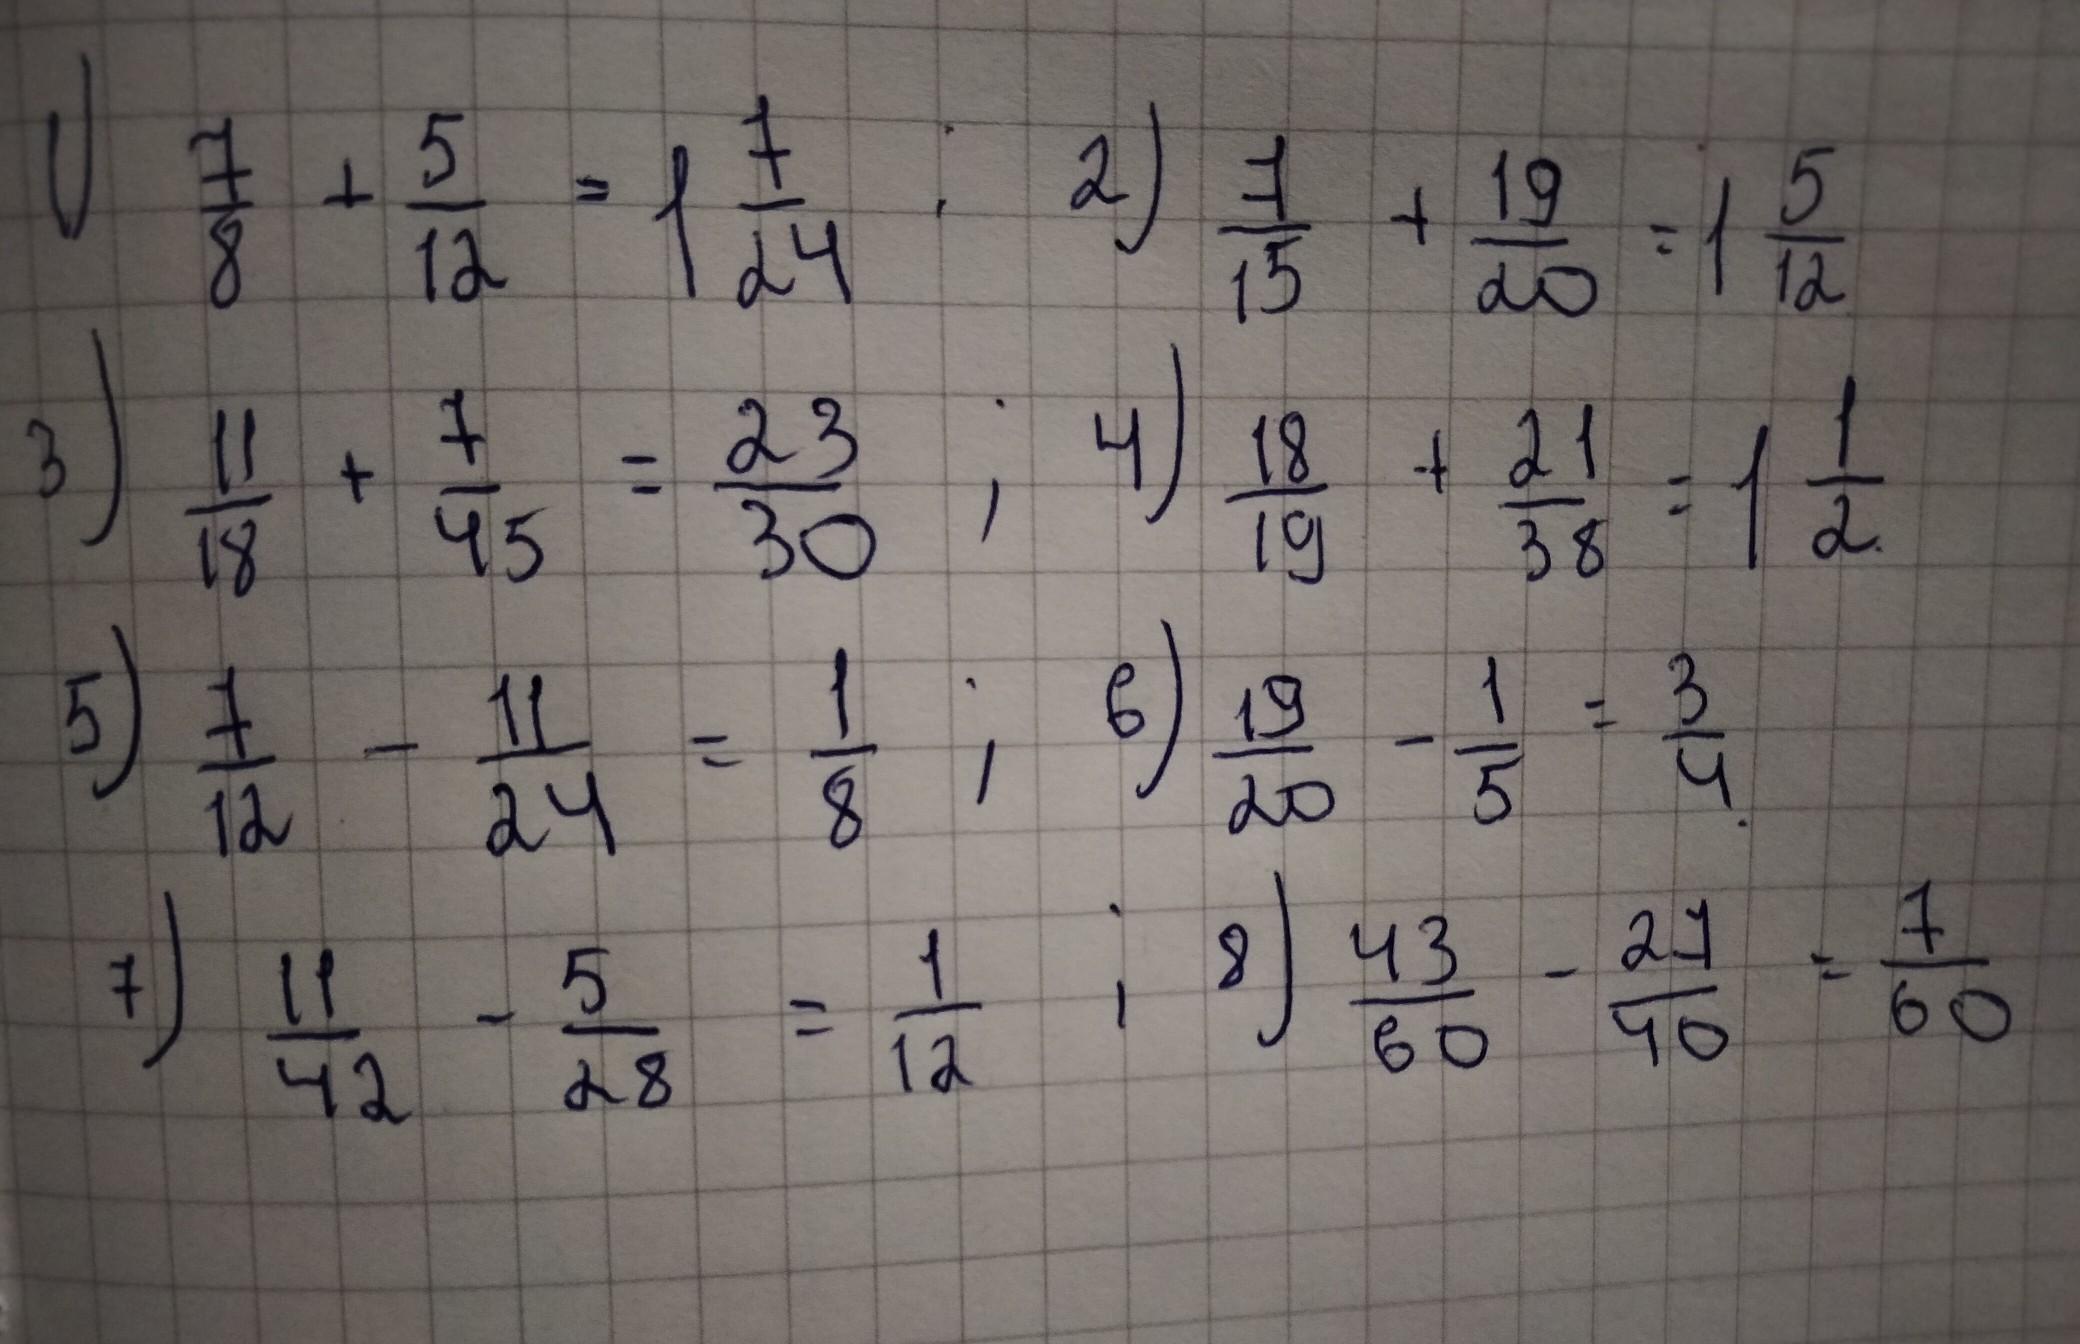 1) 7/8 + 5/12 = 1 7/24 ; 2) 7/15 + 19/20 = 1 5/12
3) 11/18 + 7/45 = 23/30 ; 4) 18/19 + 21/38 = 1 1/2.
5) 7/12 - 11/24 = 1/8 ; 6) 19/20 - 1/5 = 3/4.
7) 11/42 - 5/28 = 1/12 ; 8) 43/60 - 27/40 = 7/60